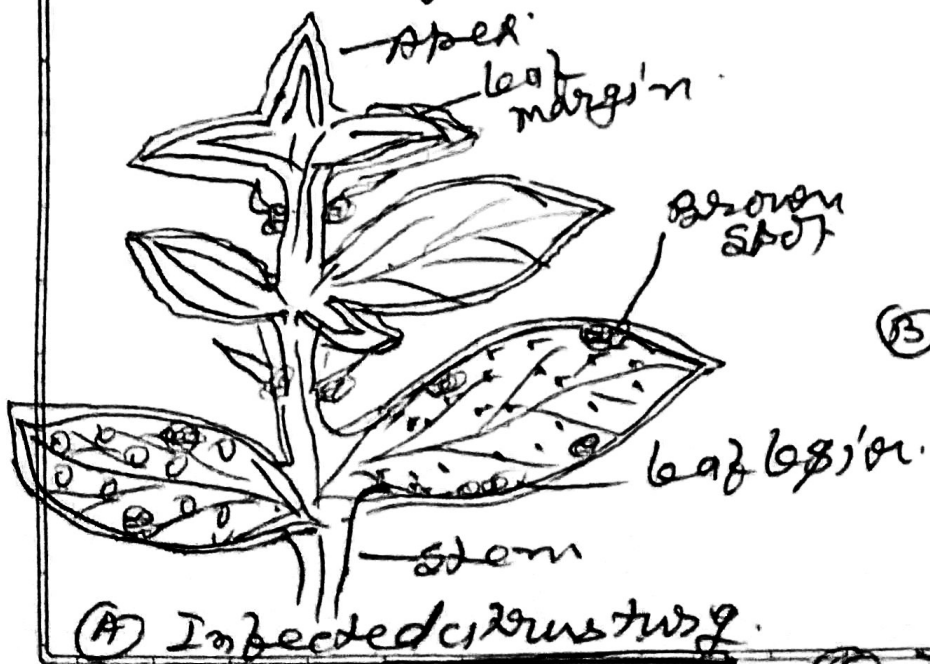 Apex
leaf
margin
Brown
spot
B
leaf lesion.
stem
A Infected citrus twig.